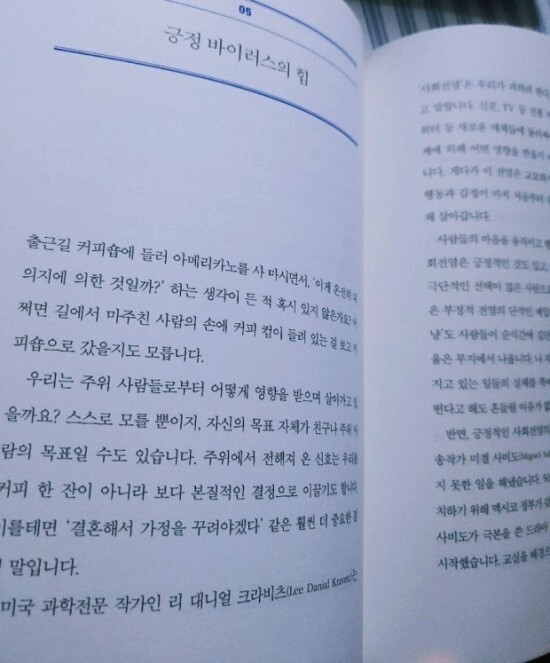 05
긍정 바이러스의 힘
출근길 커피숍에 들러 아메리카노를 사 마시면서, '이게 온전히
의지에 의한 것일까?' 하는 생각이 든 적 혹시 있지 않은가요?
쩌면 길에서 마주친 사람의 손에 커피 컵이 들려 있는 걸 보고
피숍으로 갔을지도 모릅니다.
우리는 주위 사람들로부터 어떻게 영향을 받으며 살아가고 있
을까요? 스스로 모를 뿐이지, 자신의 목표 자체가 친구나 주위
람의 목표일 수도 있습니다. 주위에서 전해져 온 신호는 우리를
커피 한 잔이 아니라 보다 본질적인 결정으로 이끌기도 합니다.
이를테면 '결혼해서 가정을 꾸려야겠다' 같은 훨씬 더 중요한
말입니다.
미국 과학전문 작가인 리 대니얼 크라비츠(Lee Danial Kravetz)는
'사회전염'은 우리가 피하려 한다
고 말합니다. 신문, TV 등 전통
터 등 새로운 매체들에
에 의해 어떤 영향을 받을지
니다. 게다가 이 전염은
행동과 감정이 마치 처음부터
왜 살아갑니다.
사람들의 마음을 움직이고
회전염은 긍정적인 것도 있고,
극단적인 선택이 많은 사람으로
은 부정적 전염의 단적인 예입
냥'도 사람들이 순식간에 집단
움은 무지에서 나옵니다. 나 자
지고 있는 일들의 실체를 똑
면다고 해도 흔들릴 이유가 없
반면, 긍정적인 사회전염의
송작가 미겔 사비도(Miguel
지 못한 일을 해냈습니다.
치하기 위해 멕시코 정부가
사비도가 극본을 쓴 드라마
시작했습니다. 교실을 배경으